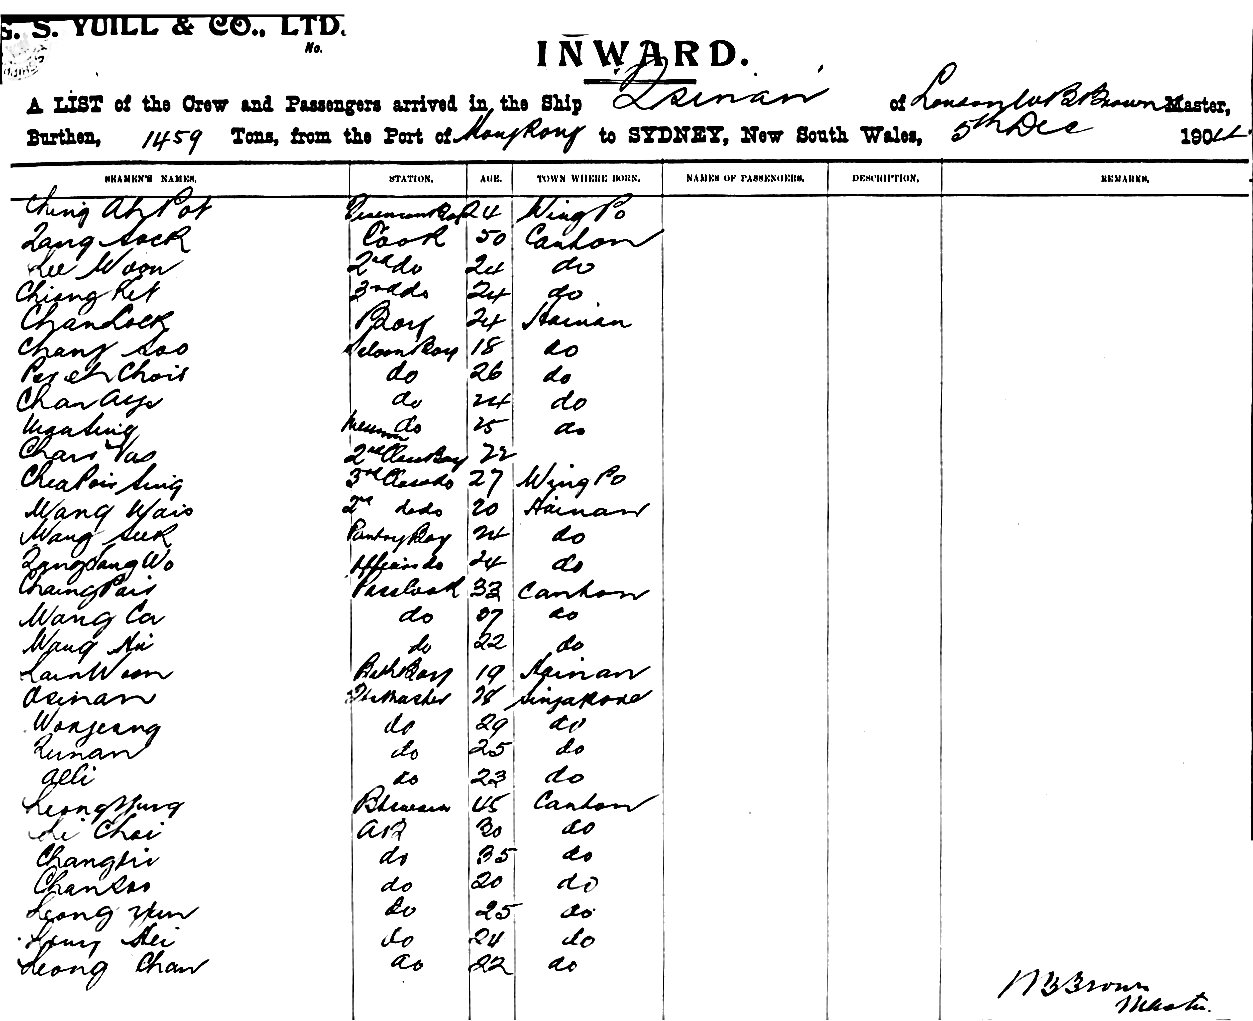 G. S. YUILL & CO., LTD.
No.
INWARD.
A LIST of the Crew and Passengers arrived in the Ship Tsinan of London W B Brown Master,
Burthen, 1459 Tons, from the Port of Hong Kong to SYDNEY, New South Wales, 5th Dec 190
SEAMEN'S NAMES. STATION. AGE. TOWN WHERE BORN. NAMES OF PASSENGERS. DESCRIPTION. REMARKS.
Ching Ah Pot 24 Wing Po
Sock Cook 50 Canton
Lee Woon 2nd do 24 do
Chiong Ket 3rd do 24 do
Chan Lock Boy 24 Hainan
Chang Soo Saloon Boy 18 do
Chois do 26 do
Chan do 24 do
do 25 do
Chan 2nd Class Boy 22
Sing 3rd Class do 27 Wing Po
Wang Wais 2nd do do 20 Hainan
Wang Suk Pantry Boy 24 do
Wo Officers do 24 do
Chaing Pais Pass Cook 33 Canton
Wang Ca do 37 do
Wang Hi do 22 do
Lain Woon Bath Boy 19 Hainan
Osinan 28 Singapore
Wonjeang do 29 do
do 25 do
Alli do 23 do
Leong Yung 45 Canton
Li Choi AB 30 do
Chang do 35 do
Chan Soo do 20 do
Leong Yun do 25 do
Hei do 24 do
Leong Chan do 22 do
W B Brown
Master.